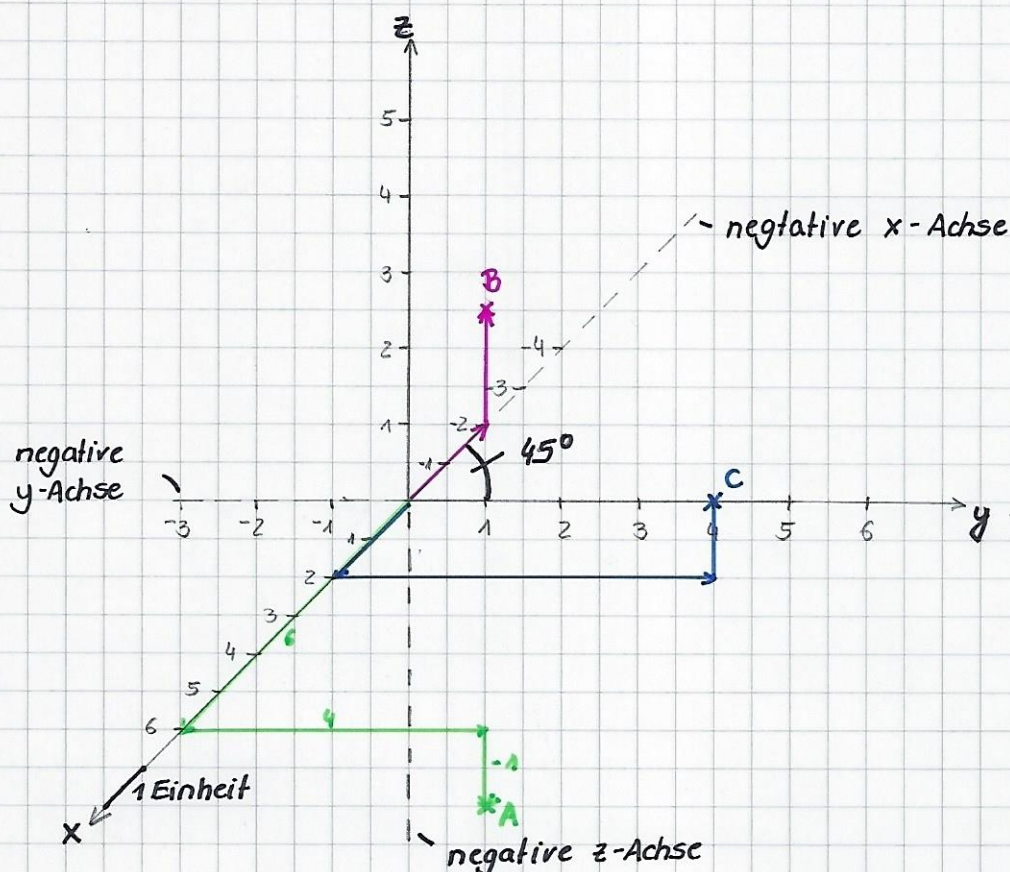 z
5
4
negtative x-Achse
3
B
2
-4
-3
1
-2
45°
-1
negative
y-Achse
C
-3 -2 -1 1 2 3 4 5 6 y
1
2
3
6
4
5
6
4
-1
1 Einheit
A
x
negative z-Achse